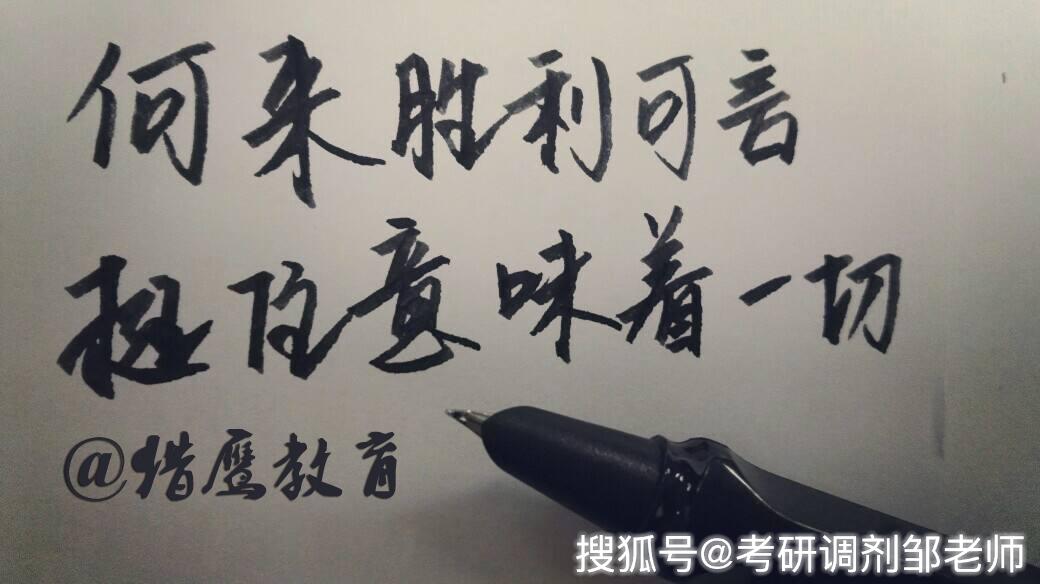 何来胜利可言
挺住意味着一切
@猎鹰教育
搜狐号@考研调剂邹老师